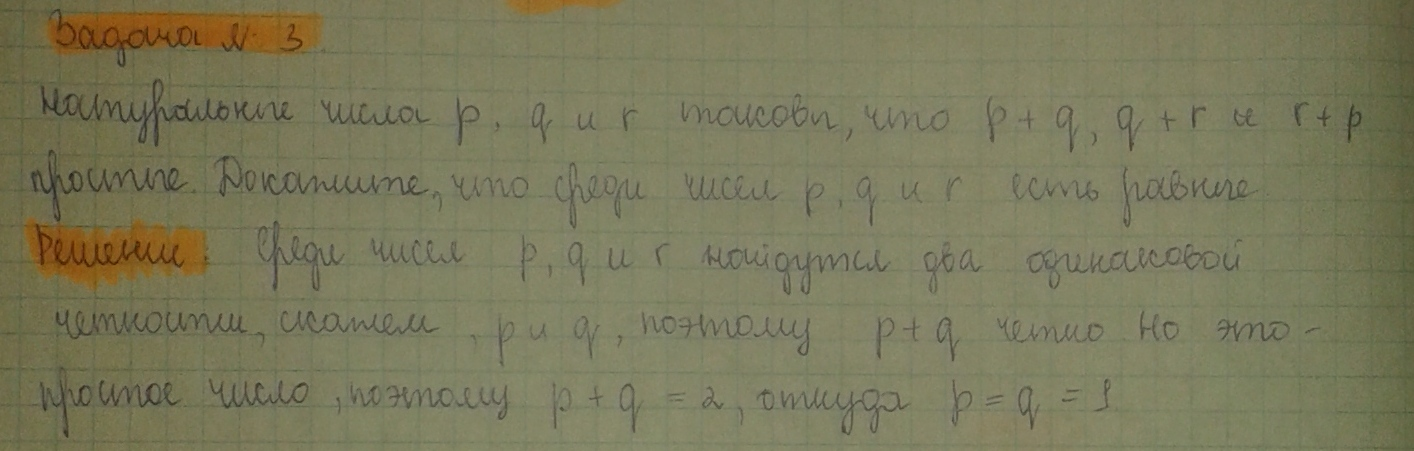 Задача № 3
Натуральные числа p, q и r таковы, что p + q, q + r и r + p
простые. Докажите, что среди чисел p, q и r есть равные
Решение: Среди чисел p, q и r найдутся два одинаковой
четности, скажем, p и q, поэтому p + q четно Но это -
простое число, поэтому p + q = 2, откуда p = q = 1